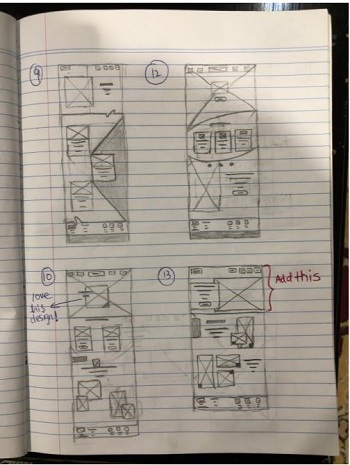 9
12
10
love
this
design!
13
Add this